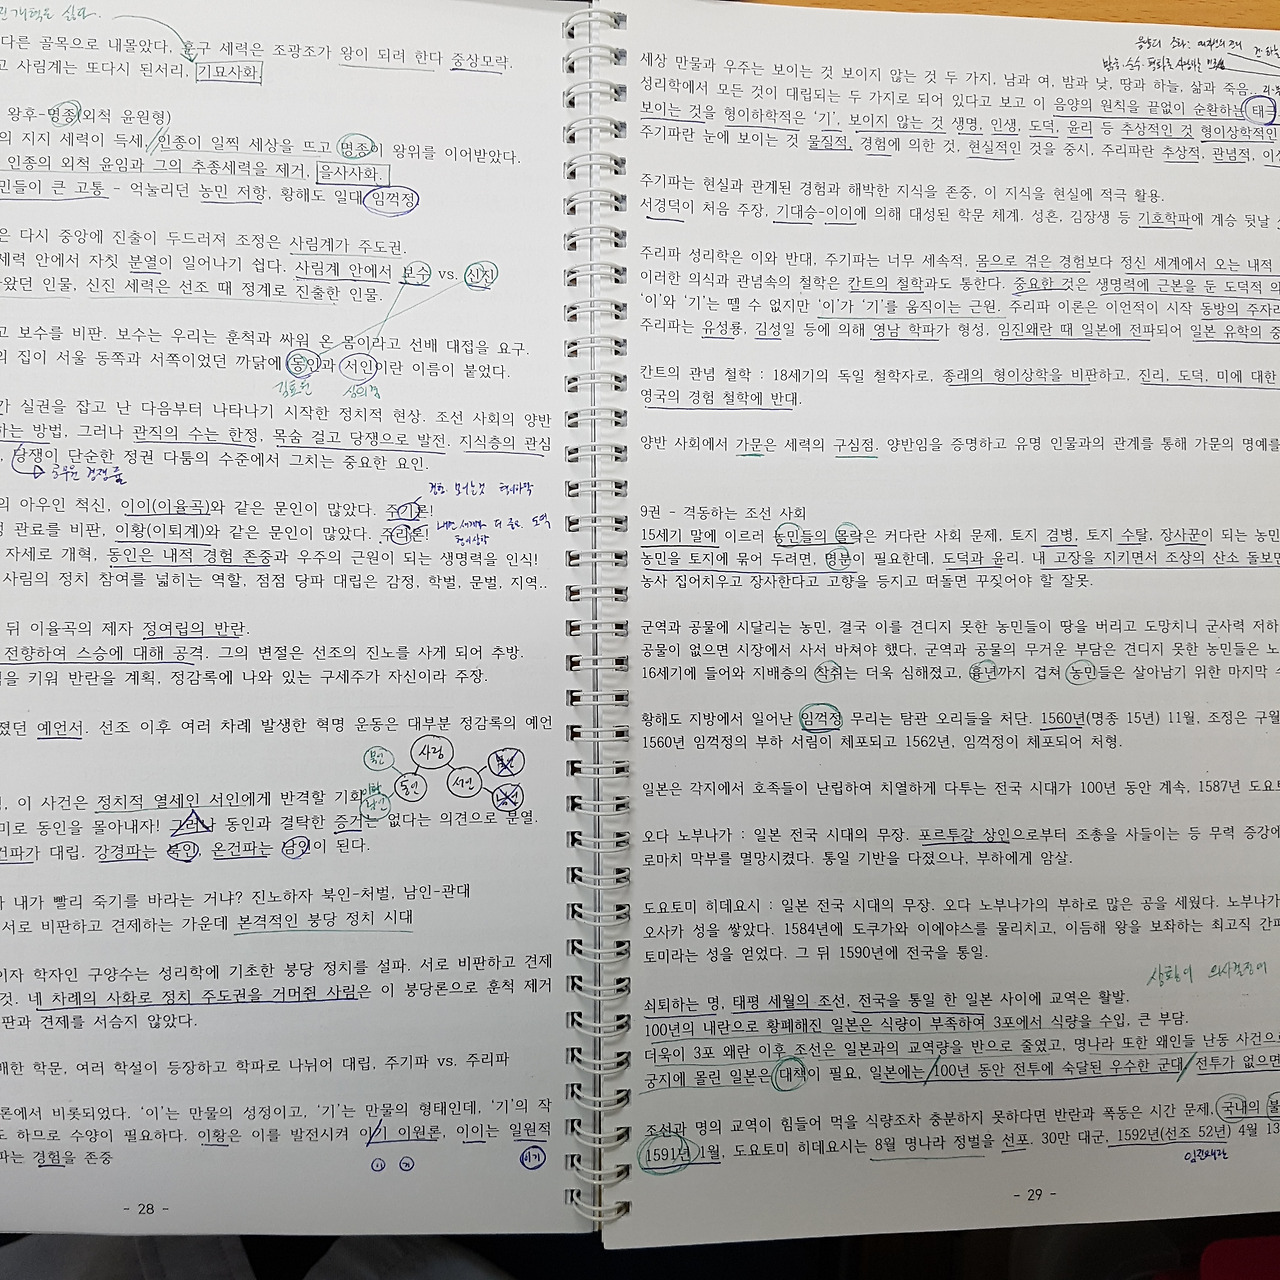 다른 골목으로 내몰았다, 훈구 세력은 조광조가 왕이 되려 한다 중상모략.
고 사림계는 또다시 된서리, 기묘사화.
왕후-명종(외척 윤원형)
의 지지 세력이 득세, 인종이 일찍 세상을 뜨고 명종이 왕위를 이어받았다.
인종의 외척 윤임과 그의 추종세력을 제거, 을사사화.
민들이 큰 고통 - 억눌리던 농민 저항, 황해도 일대 임꺽정
은 다시 중앙에 진출이 두드러져 조정은 사림계가 주도권.
세력 안에서 자칫 분열이 일어나기 쉽다. 사림계 안에서 보수 vs. 신진
나왔던 인물, 신진 세력은 선조 때 정계로 진출한 인물.
고 보수를 비판. 보수는 우리는 훈척과 싸워 온 몸이라고 선배 대접을 요구.
의 집이 서울 동쪽과 서쪽이었던 까닭에 동인과 서인이란 이름이 붙었다.
김효원 심의겸
가 실권을 잡고 난 다음부터 나타나기 시작한 정치적 현상. 조선 사회의 양반
하는 방법, 그러나 관직의 수는 한정, 목숨 걸고 당쟁으로 발전. 지식층의 관심
, 당쟁이 단순한 정권 다툼의 수준에서 그치는 중요한 요인.
의 아우인 척신, 이이(이율곡)와 같은 문인이 많았다. 주기론!
성 관료를 비판, 이황(이퇴계)와 같은 문인이 많았다. 주리론!
자세로 개혁, 동인은 내적 경험 존중과 우주의 근원이 되는 생명력을 인식!
사림의 정치 참여를 넓히는 역할, 점점 당파 대립은 감정, 학벌, 문벌, 지역..
뒤 이율곡의 제자 정여립의 반란.
전향하여 스승에 대해 공격. 그의 변절은 선조의 진노를 사게 되어 추방.
을 키워 반란을 계획, 정감록에 나와 있는 구세주가 자신이라 주장.
졌던 예언서. 선조 이후 여러 차례 발생한 혁명 운동은 대부분 정감록의 예언
북인 사림
동인 서인
, 이 사건은 정치적 열세인 서인에게 반격할 기회
미로 동인을 몰아내자! 그러나 동인과 결탁한 증거는 없다는 의견으로 분열.
건파가 대립. 강경파는 북인, 온건파는 남인이 된다.
내가 빨리 죽기를 바라는 거냐? 진노하자 북인-처벌, 남인-관대
서로 비판하고 견제하는 가운데 본격적인 붕당 정치 시대
이자 학자인 구양수는 성리학에 기초한 붕당 정치를 설파. 서로 비판하고 견제
것. 네 차례의 사화로 정치 주도권을 거머쥔 사림은 이 붕당론으로 훈척 제거
판과 견제를 서슴지 않았다.
배한 학문, 여러 학설이 등장하고 학파로 나뉘어 대립, 주기파 vs. 주리파
론에서 비롯되었다. ‘이’는 만물의 성정이고, ‘기’는 만물의 형태인데, ‘기’의 작
도 하므로 수양이 필요하다. 이황은 이를 발전시켜 이기 이원론, 이이는 일원적
파는 경험을 존중
- 28 -
세상 만물과 우주는 보이는 것 보이지 않는 것 두 가지, 남과 여, 밤과 낮, 땅과 하늘, 삶과 죽음..
성리학에서 모든 것이 대립되는 두 가지로 되어 있다고 보고 이 음양의 원칙을 끝없이 순환하는 태극
보이는 것을 형이하학적은 ‘기’, 보이지 않는 것 생명, 인생, 도덕, 윤리 등 추상적인 것 형이상학적인
주기파란 눈에 보이는 것 물질적, 경험에 의한 것, 현실적인 것을 중시, 주리파란 추상적, 관념적, 이
주기파는 현실과 관계된 경험과 해박한 지식을 존중, 이 지식을 현실에 적극 활용.
서경덕이 처음 주장, 기대승-이이에 의해 대성된 학문 체계. 성혼, 김장생 등 기호학파에 계승 뒷날
주리파 성리학은 이와 반대, 주기파는 너무 세속적, 몸으로 겪은 경험보다 정신 세계에서 오는 내적
이러한 의식과 관념속의 철학은 칸트의 철학과도 통한다. 중요한 것은 생명력에 근본을 둔 도덕적 의
‘이’와 ‘기’는 뗄 수 없지만 ‘이’가 ‘기’를 움직이는 근원. 주리파 이론은 이언적이 시작 동방의 주자라
주리파는 유성룡, 김성일 등에 의해 영남 학파가 형성, 임진왜란 때 일본에 전파되어 일본 유학의 중
칸트의 관념 철학 : 18세기의 독일 철학자로, 종래의 형이상학을 비판하고, 진리, 도덕, 미에 대한
영국의 경험 철학에 반대.
양반 사회에서 가문은 세력의 구심점. 양반임을 증명하고 유명 인물과의 관계를 통해 가문의 명예를
9권 - 격동하는 조선 사회
15세기 말에 이르러 농민들의 몰락은 커다란 사회 문제, 토지 겸병, 토지 수탈, 장사꾼이 되는 농민
농민을 토지에 묶어 두려면, 명분이 필요한데, 도덕과 윤리. 내 고장을 지키면서 조상의 산소 돌보면
농사 집어치우고 장사한다고 고향을 등지고 떠돌면 꾸짖어야 할 잘못.
군역과 공물에 시달리는 농민, 결국 이를 견디지 못한 농민들이 땅을 버리고 도망치니 군사력 저하
공물이 없으면 시장에서 사서 바쳐야 했다. 군역과 공물의 무거운 부담은 견디지 못한 농민들은 노
16세기에 들어와 지배층의 착취는 더욱 심해졌고, 흉년까지 겹쳐 농민들은 살아남기 위한 마지막
황해도 지방에서 일어난 임꺽정 무리는 탐관 오리들을 처단. 1560년(명종 15년) 11월, 조정은 구월
1560년 임꺽정의 부하 서림이 체포되고 1562년, 임꺽정이 체포되어 처형.
일본은 각지에서 호족들이 난립하여 치열하게 다투는 전국 시대가 100년 동안 계속, 1587년 도요
오다 노부나가 : 일본 전국 시대의 무장. 포르투갈 상인으로부터 조총을 사들이는 등 무력 증강에
로마치 막부를 멸망시켰다. 통일 기반을 다졌으나, 부하에게 암살.
도요토미 히데요시 : 일본 전국 시대의 무장. 오다 노부나가의 부하로 많은 공을 세웠다. 노부나가
오사카 성을 쌓았다. 1584년에 도쿠가와 이에야스를 물리치고, 이듬해 왕을 보좌하는 최고직 간파
토미라는 성을 얻었다. 그 뒤 1590년에 전국을 통일.
쇠퇴하는 명, 태평 세월의 조선, 전국을 통일 한 일본 사이에 교역은 활발.
100년의 내란으로 황폐해진 일본은 식량이 부족하여 3포에서 식량을 수입, 큰 부담.
더욱이 3포 왜란 이후 조선은 일본과의 교역량을 반으로 줄였고, 명나라 또한 왜인들 난동 사건으로
궁지에 몰린 일본은 대책이 필요, 일본에는 100년 동안 전투에 숙달된 우수한 군대 전투가 없으면
조선과 명의 교역이 힘들어 먹을 식량조차 충분하지 못하다면 반란과 폭동은 시간 문제, 국내의 불
1591년 1월, 도요토미 히데요시는 8월 명나라 정벌을 선포. 30만 대군, 1592년(선조 52년) 4월 13
임진왜란
- 29 -